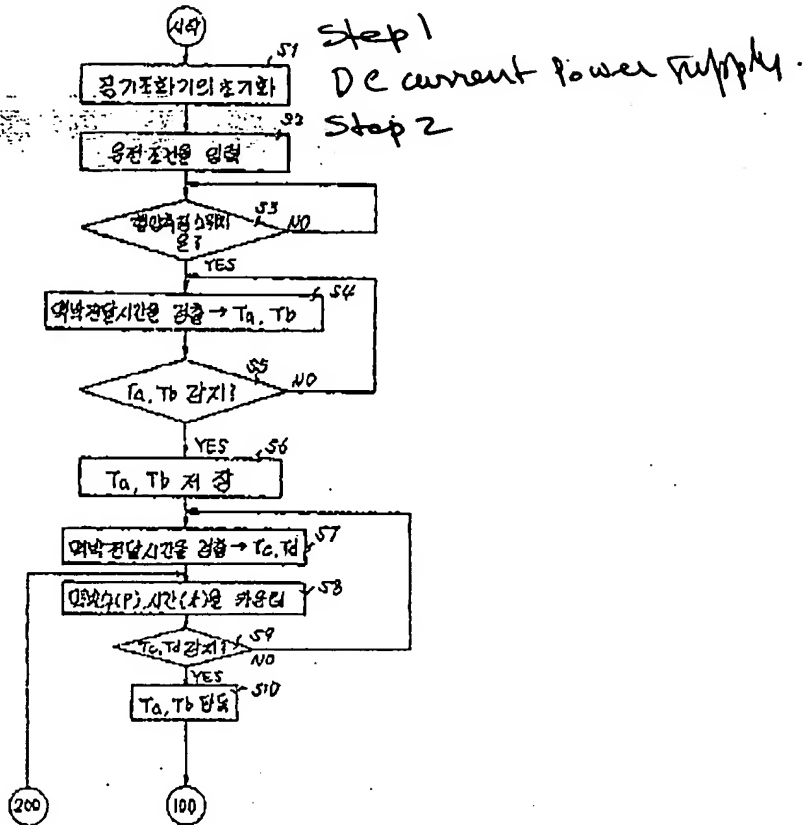 시작
S1
Step 1
공기조화기의 초기화
DC current Power supply.
S2
Step 2
운전조건을 입력
S3
혈압측정스위치
온?
NO
YES
S4
맥박전달시간을 검출 → Ta, Tb
S5
Ta, Tb 감지?
NO
YES
S6
Ta, Tb 저장
S7
맥박전달시간을 검출 → Tc, Td
S8
맥박수(P), 시간(t)을 카운터
S9
Tc, Td 감지?
NO
YES
S10
Ta, Tb
200
100